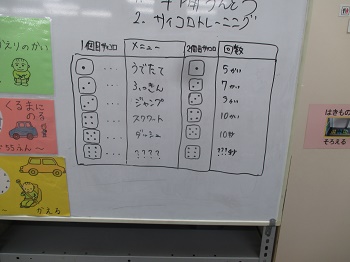 2. サイコロトレーニング
1個目サイコロ メニュー 2個目サイコロ 回数
… うでたて 5かい
… ふっきん 7かい
… ジャンプ 5かい
… スクワット 10かい
… ダッシュ 10秒
… ???? ???秒
かえりのかい
くるまに
のる
かえる
はきもの
そろえる